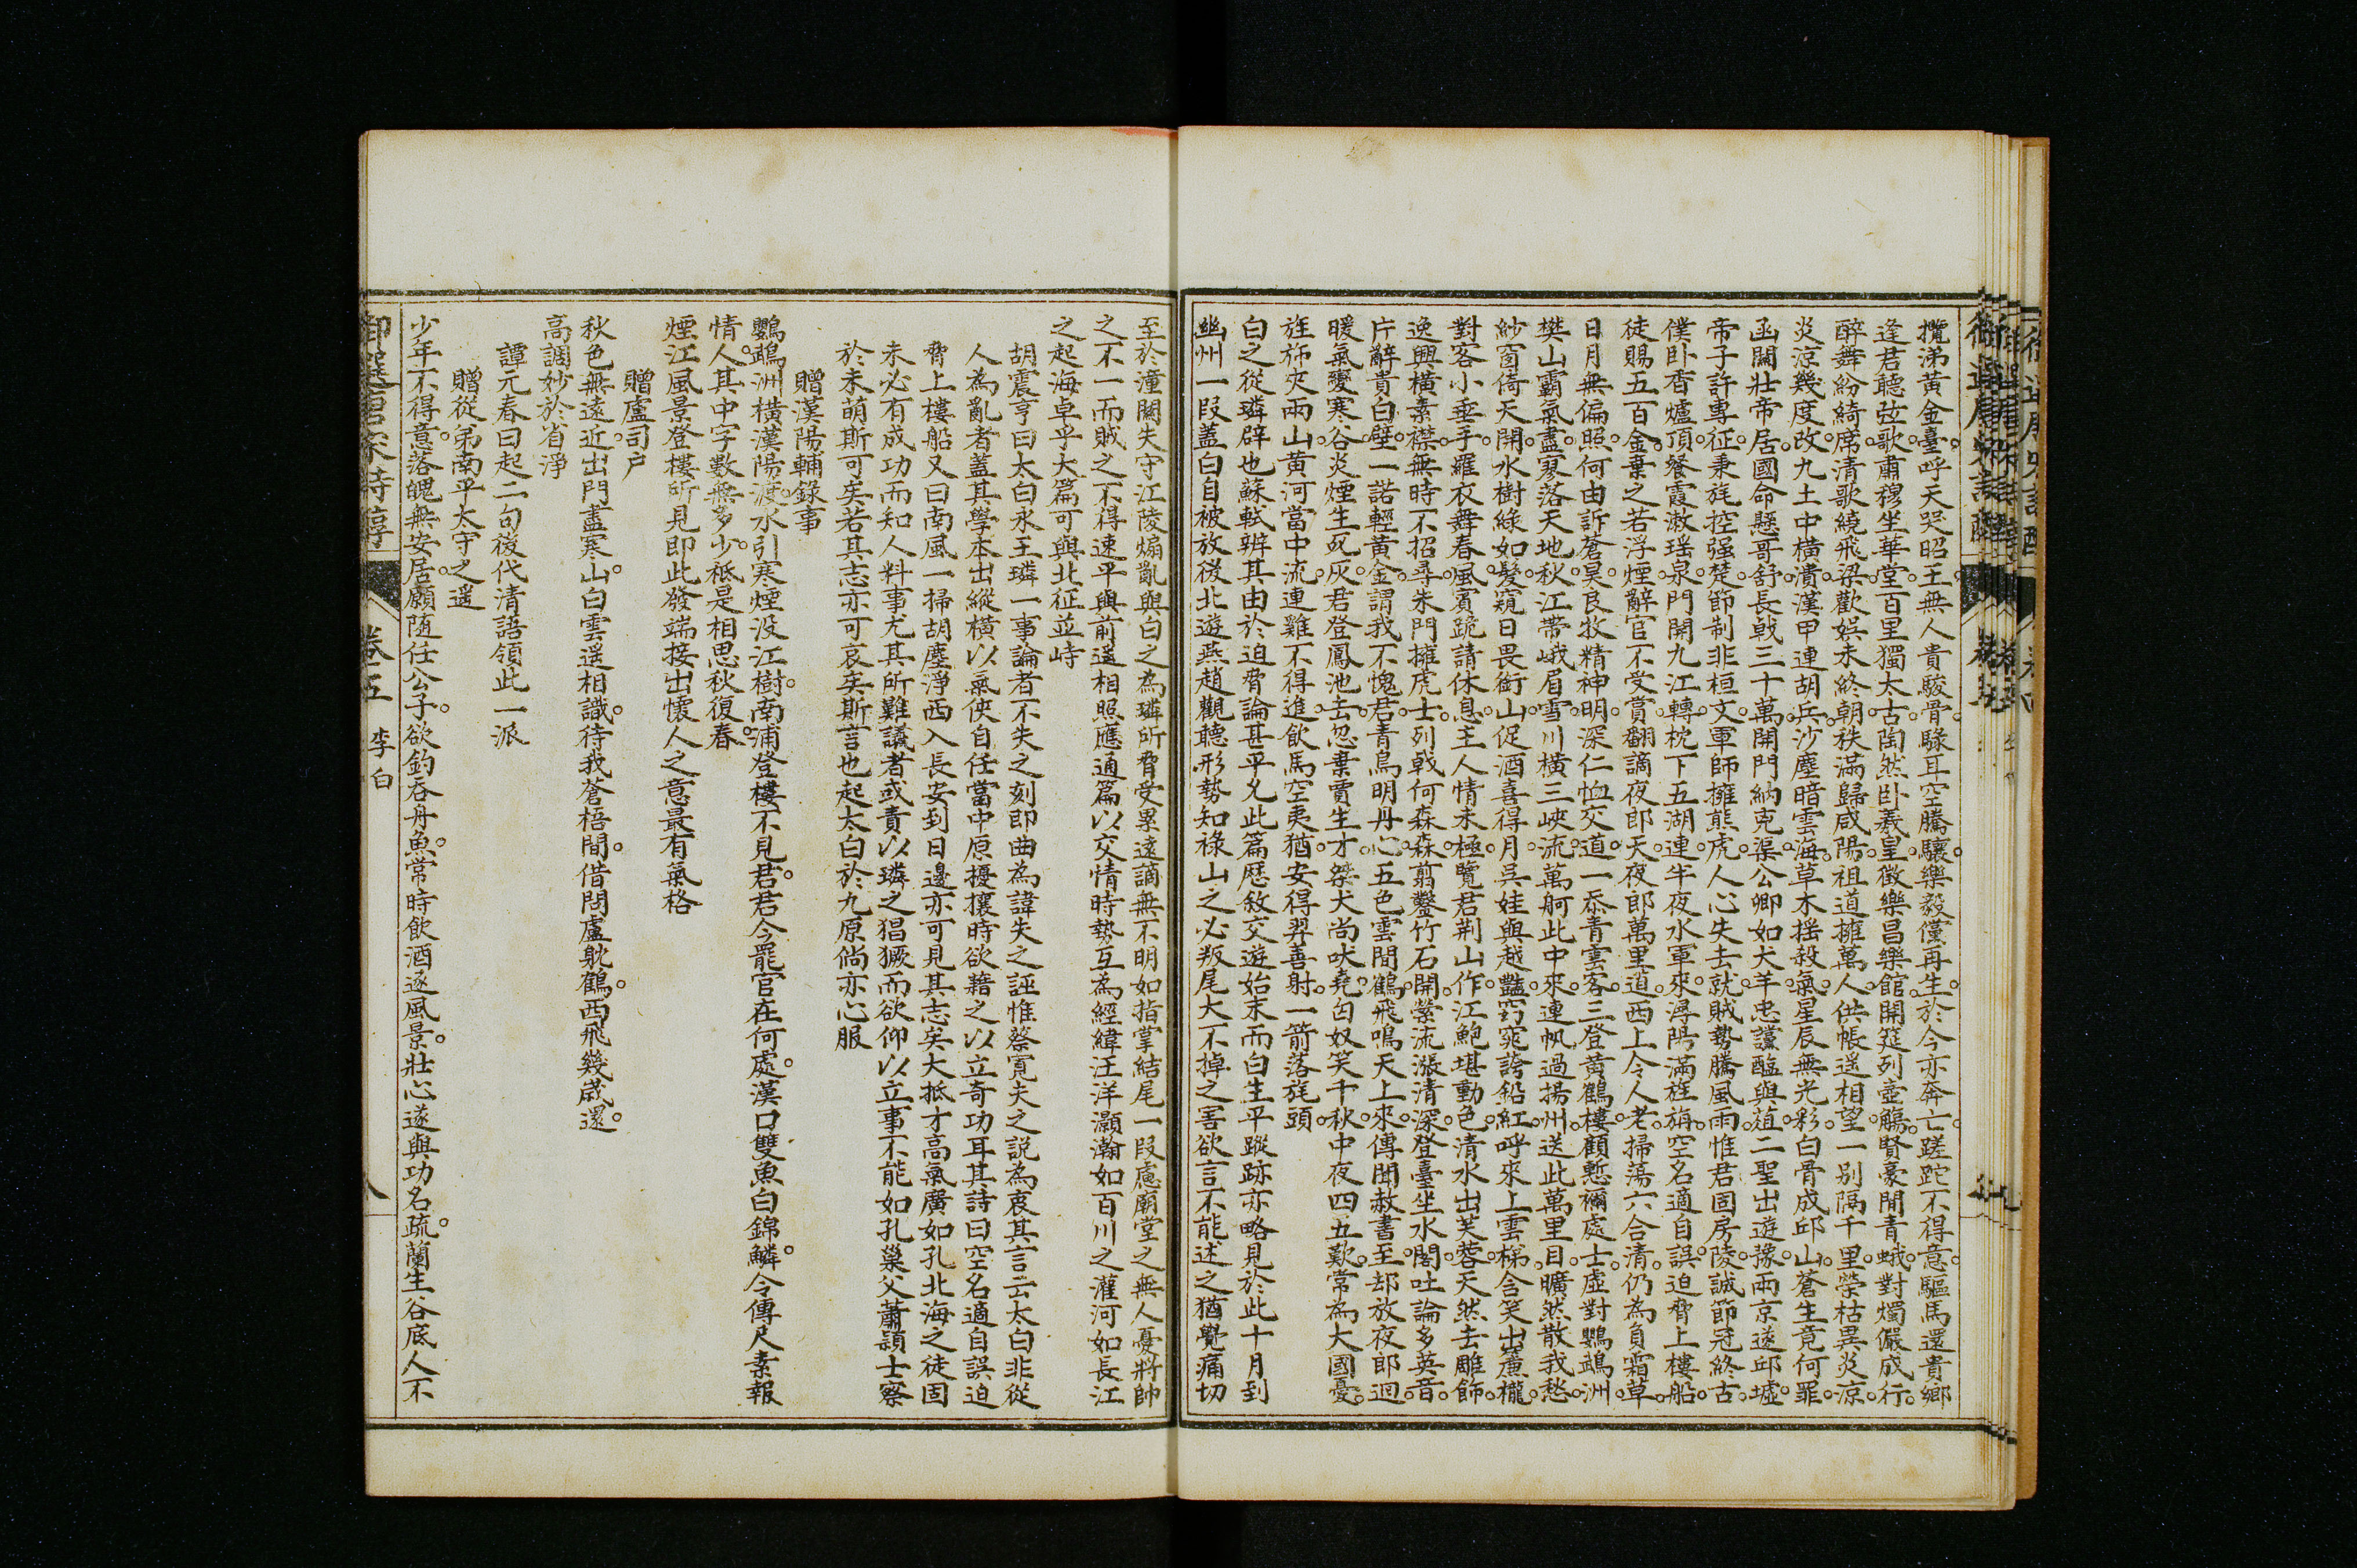 攬涕黃金臺呼天哭昭王無人貴駿骨騄耳空騰驤樂毅儻再生於今亦奔亡蹉跎不得意驅馬還貴鄉
逢君聽弦歌肅穆坐華堂百里獨太古陶然卧羲皇徵樂昌樂館開筵列壺觴賢豪閒青蛾對燭儼成行
醉舞紛綺席清歌繞飛梁歡娛未終朝秩滿歸咸陽祖道擁萬人供帳遥相望一别隔千里榮枯異炎涼
炎涼幾度改九土中橫潰漢甲連胡兵沙塵暗雲海草木摇殺氣星辰無光彩白骨成邱山蒼生竟何罪
函關壯帝居國命懸哥舒長戟三十萬開門納兇渠公卿如犬羊忠讜醢與葅二聖出遊豫兩京遂邱墟
帝子許專征秉旄控强楚節制非桓文軍師擁熊虎人心失去就賊勢騰風雨惟君固房陵誠節冠終古
僕卧香爐頂餐霞漱瑶泉門開九江轉枕下五湖連半夜水軍來潯陽滿旌旃空名適自誤迫脅上樓船
徒賜五百金棄之若浮煙辭官不受賞翻謫夜郎天夜郎萬里道西上令人老掃蕩六合清仍為負霜草
日月無偏照何由訴蒼昊良牧精神明深仁恤交道一忝青雲客三登黃鶴樓顧慙禰處士虛對鸚鵡洲
樊山霸氣盡寥落天地秋江帶峨眉雪川橫三峽流萬舸此中來連帆過揚州送此萬里目曠然散我愁
紗窗倚天開水樹綠如髮窺日畏銜山促酒喜得月吳娃與越豔窈窕誇鉛紅呼來上雲梯含笑出簾櫳
對客小垂手羅衣舞春風賓跪請休息主人情未極覽君荆山作江鮑堪動色清水出芙蓉天然去雕飾
逸興橫素襟無時不招尋朱門擁虎士列戟何森森剪鑿竹石開縈流漲清深登臺坐水閣吐論多英音
片辭貴白璧一諾輕黃金謂我不愧君青鳥明丹心五色雲間鵲飛鳴天上來傳聞赦書至却放夜郎迴
暖氣變寒谷炎煙生死灰君登鳳池去忽棄賈生才桀犬尚吠堯匈奴笑千秋中夜四五歎常為大國憂
旌斾夾兩山黃河當中流連雞不得進飲馬空夷猶安得羿善射一箭落旄頭
白之從璘辟也蘇軾辨其由於迫脅論甚平允此篇歷敘交遊始末而白生平蹤跡亦略見於此十月到
幽州一段蓋白自被放後北遊燕趙觀聽形勢知祿山之必叛尾大不掉之害欲言不能述之猶覺痛切
至於潼關失守江陵煽亂與白之為璘所脅受累遠謫無不明如指掌結尾一段慮廟堂之無人憂將帥
之不一而賊之不得速平與前遥相照應通篇以交情時勢互為經緯汪洋灝瀚如百川之灌河如長江
之起海卓乎大篇可與北征並峙
胡震亨曰太白永王璘一事論者不失之刻即曲為諱失之誣惟蔡寛夫之説為衷其言云太白非從
人為亂者蓋其學本出縱橫以氣俠自任當中原擾攘時欲藉之以立奇功耳其詩曰空名適自誤迫
脅上樓船又曰南風一掃胡塵淨西入長安到日邊亦可見其志矣大抵才高氣廣如孔北海之徒固
未必有成功而知人料事尤其所難議者或責以璘之猖獗而欲仰以立事不能如孔巢父蕭頴士察
於未萌斯可矣若其志亦可哀矣斯言也起太白於九原倘亦心服
贈漢陽輔錄事
鸚鵡洲橫漢陽渡水引寒煙没江樹南浦登樓不見君君今罷官在何處漢口雙魚白錦鱗令傳尺素報
情人其中字數無多少秪是相思秋復春
煙江風景登樓所見即此發端接出懷人之意最有氣格
贈盧司户
秋色無遠近出門盡寒山白雲遥相識待我蒼梧間借問盧躭鶴西飛幾歲還
高調妙於省淨
譚元春曰起二句後代清語領此一派
贈從弟南平太守之遥
少年不得意落魄無安居願随任公子欲釣吞舟魚常時飲酒逐風景壯心遂與功名疏蘭生谷底人不
御選唐宋詩醇
卷五 李白
八